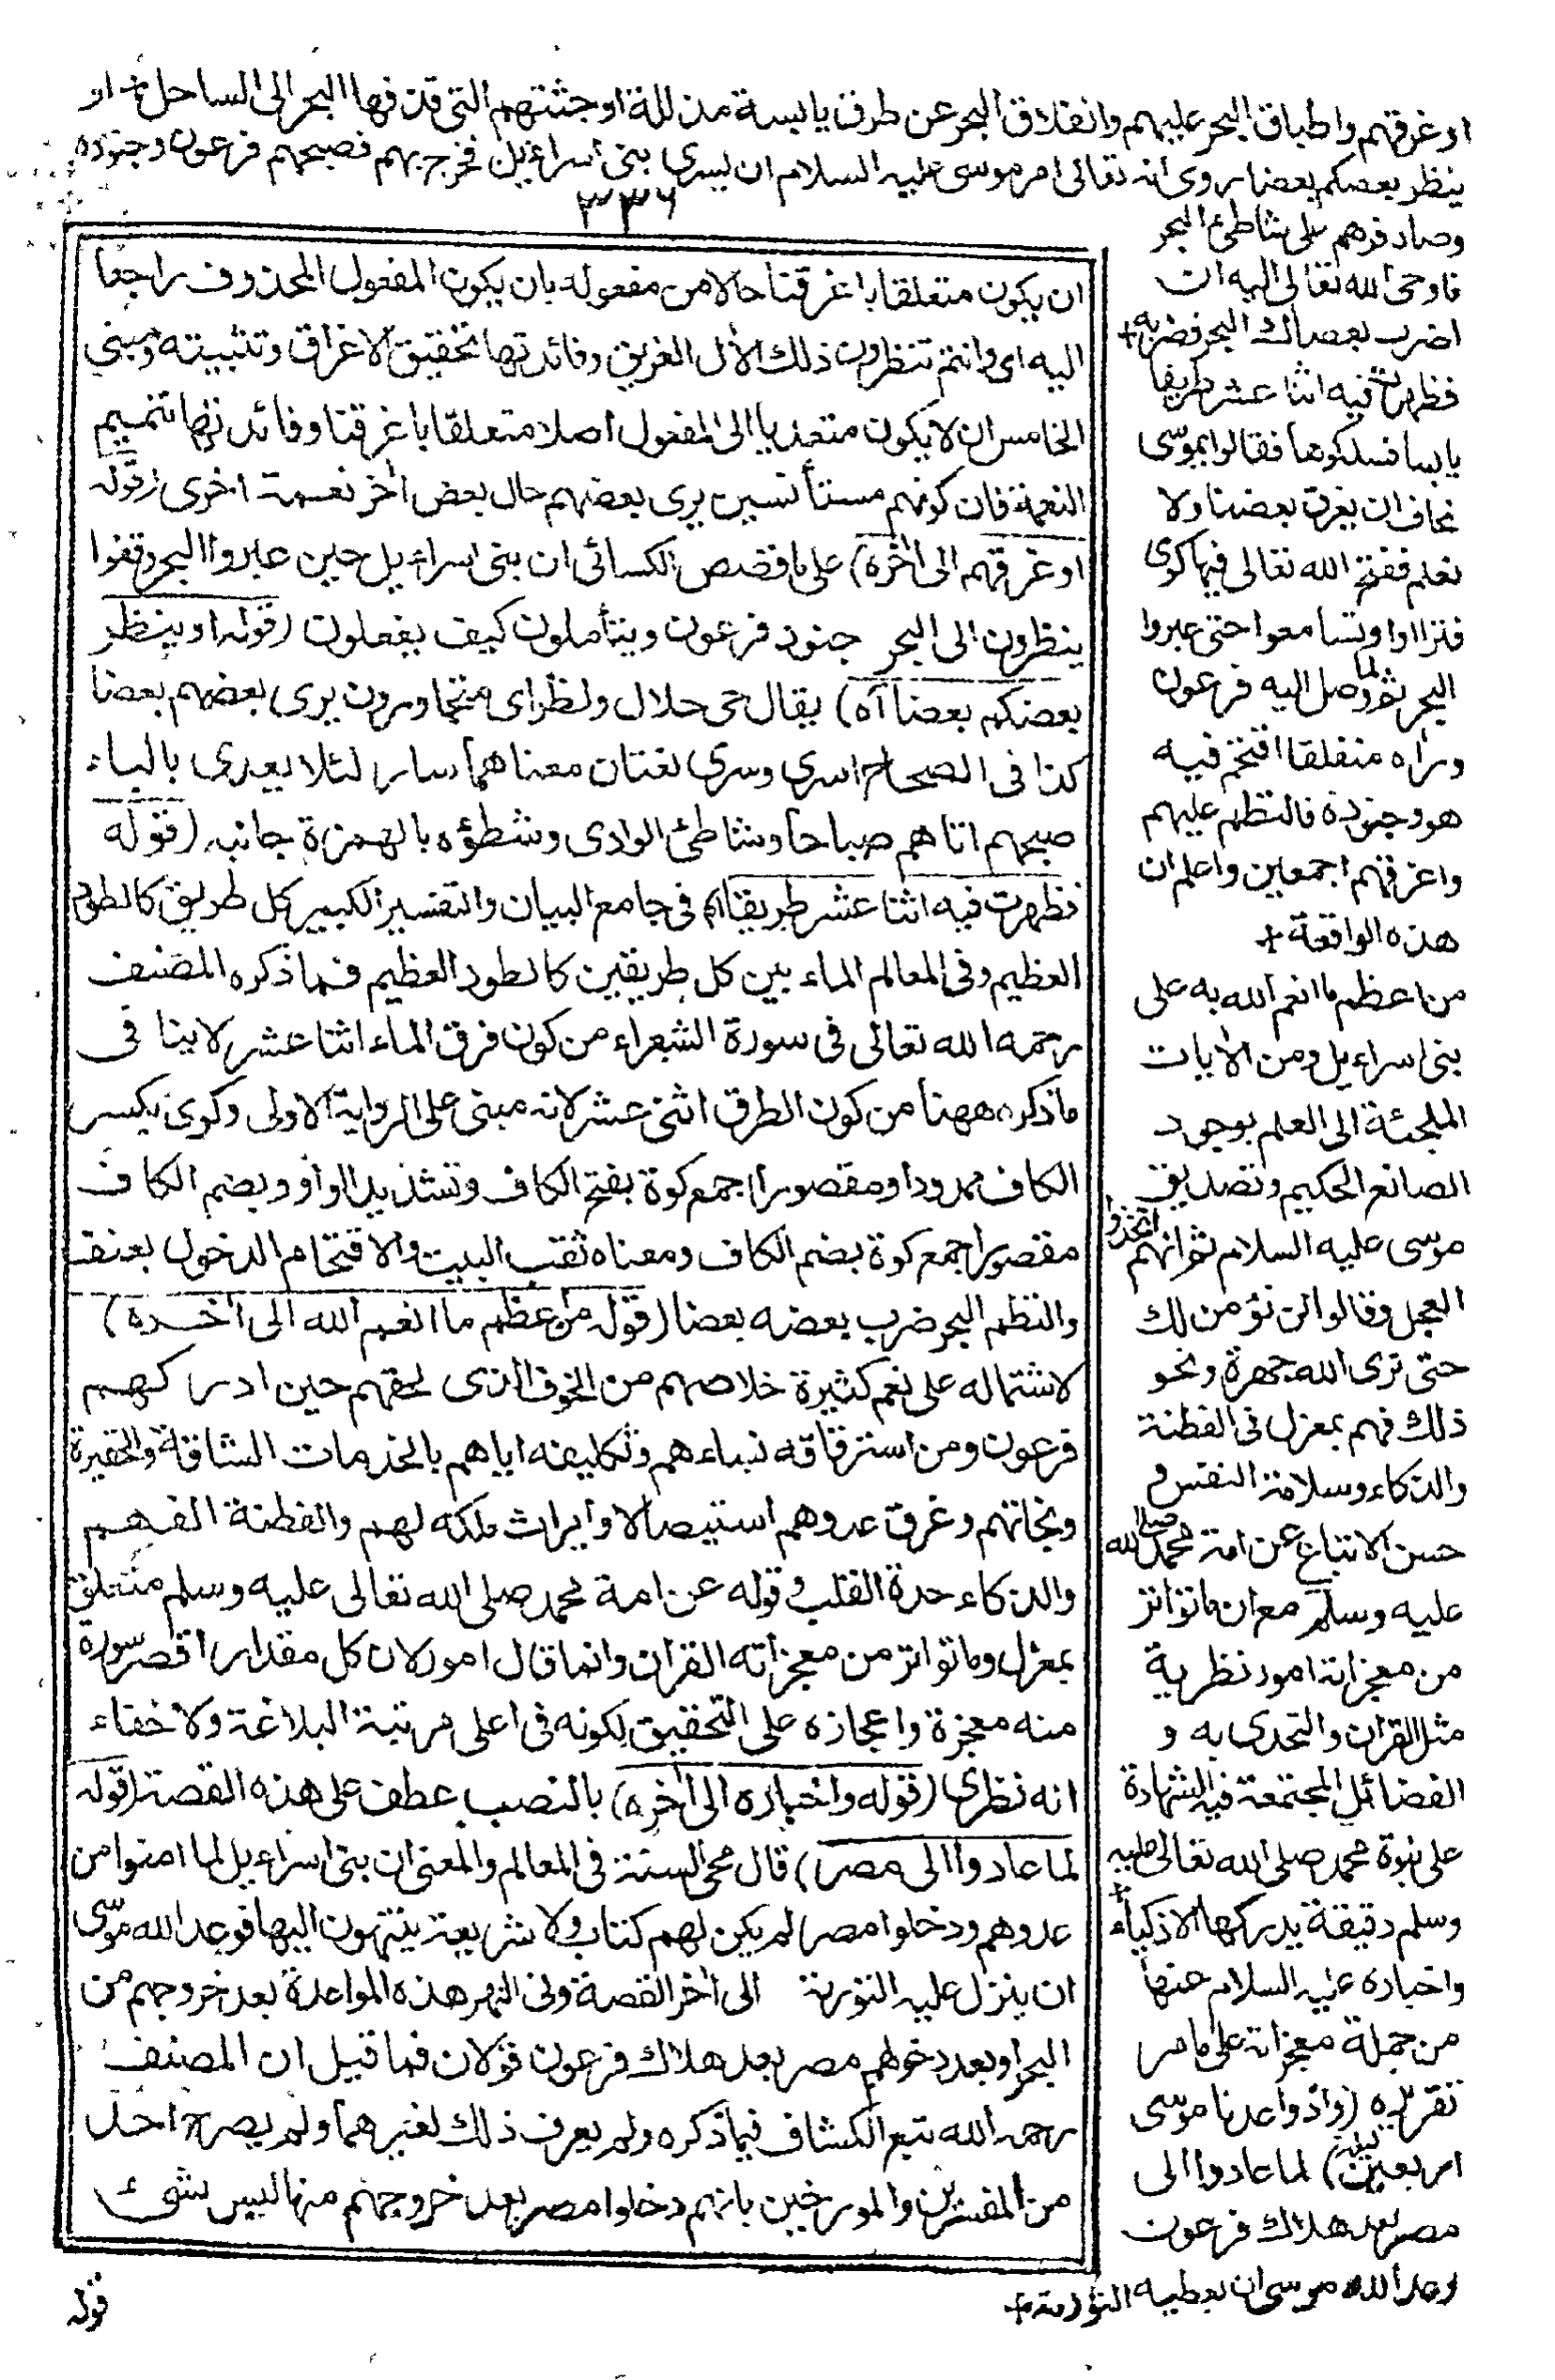 او غرقهم واطباق البحر عليهم وانفلاق البحر عن طرق يابسة مذللة او جثثهم التى قذفها البحر الى الساحل + او
ينظر بعضكم بعضا روى انه تعالى امر موسى عليه السلام ان يسرى بنى اسرائيل فخرج بهم فصبحهم فرعون وجنوده
٣٣٦
وصادفوهم على شاطئ البحر
فاوحى الله تعالى اليه ان
اضرب بعصاك البحر فضربه +
فظهرت فيه اثنا عشر طريقا
يابسا فسلكوها فقالوا يموسى
نخاف ان يغرق بعضنا ولا
نعلم ففتح الله تعالى فيها كوى
فتراأوا وتسامعوا حتى عبروا
البحر ثم لما وصل اليه فرعون
وراه منفلقا اقتحم فيه
هو وجنوده فالتطم عليهم
واغرقهم اجمعين واعلم ان
هذه الواقعة +
من اعظم ما انعم الله به على
بنى اسراءيل ومن الأيات
الملجئة الى العلم بوجود
الصانع الحكيم وتصديق
موسى عليه السلام ثم انهم اتخذوا
العجل وقالوا لن نؤمن لك
حتى نرى الله جهرة ونحو
ذلك فهم بمعزل فى الفطنة
والذكاء وسلامة النفس و
حسن الاتباع عن امة محمد صلى الله
عليه وسلم مع ان ما تواتر
من معجزاته امور نظرية
مثل القران والتحدى به و
الفضائل المجتمعة فيه الشهادة
على نبوة محمد صلى الله تعالى عليه
وسلم دقيقة يدركها الاذكياء +
واخباره عليه السلام عنها
من جملة معجزاته على ما مر
تقريره (واذ واعدنا موسى
اربعين ليلة) لما عادوا الى
مصر بعد هلاك فرعون
وعد الله موسى ان يعطيه التورىة +
ان يكون متعلقا باغرقنا حالا من مفعوله بان يكون المفعول المحذوف راجعا
اليه اى وانتم تنظرون ذلك الأل الغريق وفائدتها تحقيق الاغراق وتثبيته ومبنى
الخامس ان لا يكون متعديا الى المفعول اصلا متعلقا باغرقنا وفائدتها تتميم
النعمة فان كونهم مستأنسين يرى بعضهم حال بعض أخر نعمة اخرى (قوله
او غرقهم الى أخره) على ما فى قصص الكسائى ان بنى اسراءيل حين عبروا البحر وقفوا
ينظرون الى البحر جنود فرعون ويتأملون كيف يفعلون (قوله او ينظر
بعضكم بعضا آه) يقال حى حلال ونظراى متجاورون يرى بعضهم بعضا
كذا فى الصحاح اسرى وسرى لغتان معناهما سار لئلا يعدى بالباء
صبحهم اتاهم صباحا وشاطئ الوادى وشطؤه بالهمزة جانبه (قوله
فظهرت فيه اثنا عشر طريقا الخ) فى جامع البيان والتفسير الكبير كل طريق كالطود
العظيم وفى المعالم الماء بين كل طريقين كالطود العظيم فما ذكره المصنف
رحمه الله تعالى فى سورة الشعراء من كون فرق الماء اثنا عشر لاينافى
ما ذكره ههنا من كون الطرق اثنى عشر لانه مبنى على الرواية الاولى وكوى بكسر
الكاف ممدودا ومقصورا جمع كوة بفتح الكاف وتشديد الواو وبضم الكاف
مقصورا جمع كوة بضم الكاف ومعناه ثقب البيت والاقتحام الدخول بعنف
والتطم البحر ضرب بعضه بعضا (قوله من اعظم ما انعم الله الى أخره)
لاشتماله على نعم كثيرة خلاصهم من الخوف الذى لحقهم حين ادركهم
فرعون ومن استرقاقه نساءهم وتكليفه اياهم بالخدمات الشاقة والحقيرة
ونجاتهم وغرق عدوهم استيصالا وايراث ملكه لهم والفطنة الفهم
والذكاء حدة القلب وقوله عن امة محمد صلى الله تعالى عليه وسلم متعلق
بمعزل وما تواتر من معجزاته القران وانما قال امور لان كل مقدار اقصر سورة
منه معجزة واعجازه على التحقيق لكونه فى اعلى مرتبة البلاغة ولا خفاء
انه نظرى (قوله واخباره الى أخره) بالنصب عطف على هذه القصة (قوله
لما عادوا الى مصر) قال محى السنة فى المعالم والمعنى ان بنى اسراءيل لما امنوا من
عدوهم ودخلوا مصر لم يكن لهم كتاب ولا شريعة ينتهون اليها فوعد الله موسى
ان ينزل عليه التورىة الى أخر القصة وفى النهر هذه المواعدة بعد خروجهم من
البحر او بعد دخولهم مصر بعد هلاك فرعون قولان فما قيل ان المصنف
رحمه الله تبع الكشاف فيما ذكره ولم يعرف ذلك لغيرهما ولم يصرح احد
من المفسرين والمورخين بانهم دخلوا مصر بعد خروجهم منها ليس بشئ
قوله